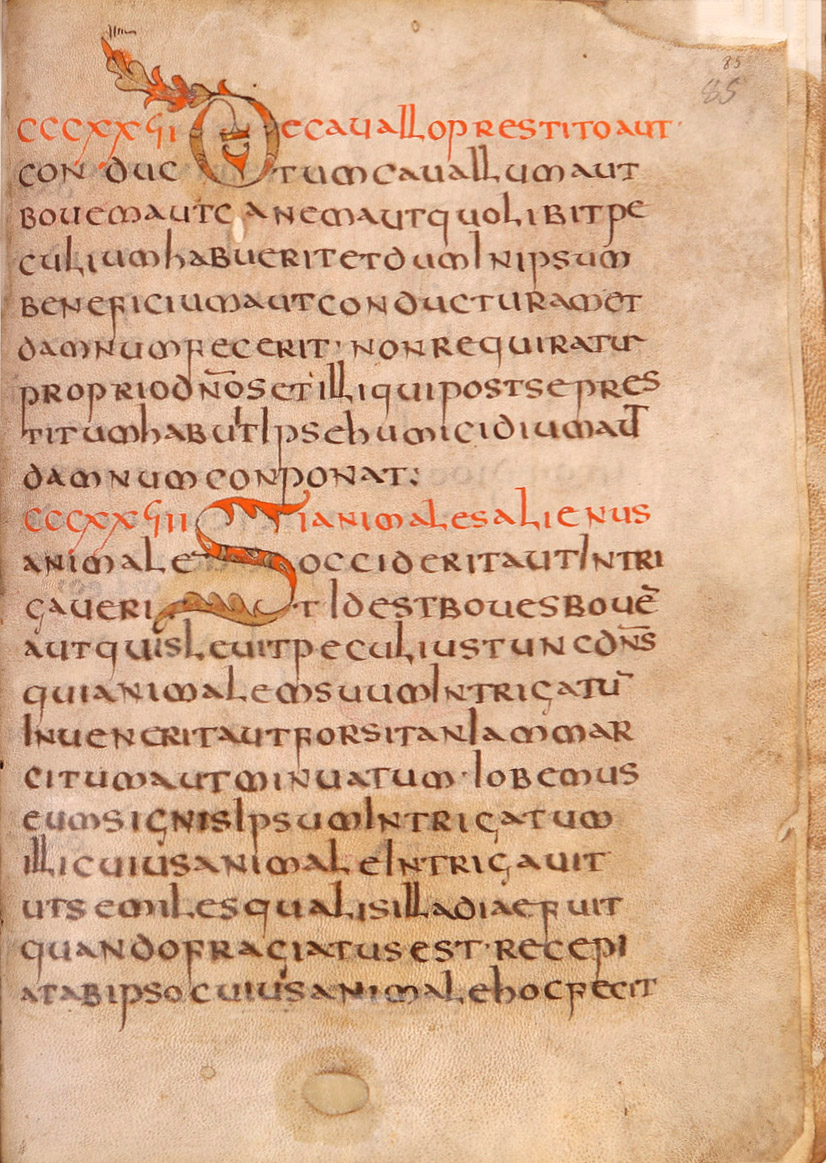 85
85
CCCXXVI De cauallo prestito aut
conductum cauallum aut
bouem aut canem aut quolibit pe
culium habuerit et dum in ipsum
beneficium aut conducturam et
damnum fecerit· non requiratur
proprio dn̄os et illi qui post se pres
titum habu't ipse humicidium aut̄
damnum conponat:
CCCXXVII Si animales alienus
animale occiderit aut intri
gaueri t idest boues bouē
aut quisleuit peculius tunc dn̄s
qui animalem suum intrigatū
inuenerit aut forsitan iam mar
citum aut minuatum· iobemus
eum signis ipsum intrigatum
illi cuius animale intrigauit
ut semiles qualis illa diae fuit
quando fragiatus est· recepi
at ab ipso cuius animale hoc fecit